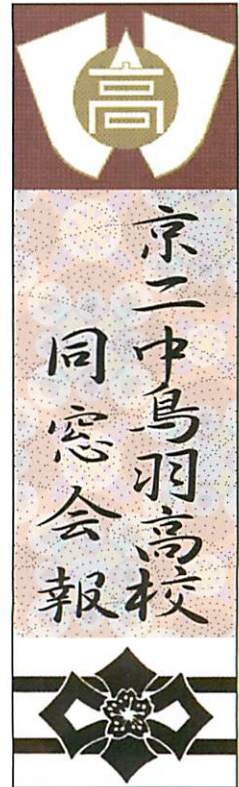 高
京二中鳥羽高校
同窓会報